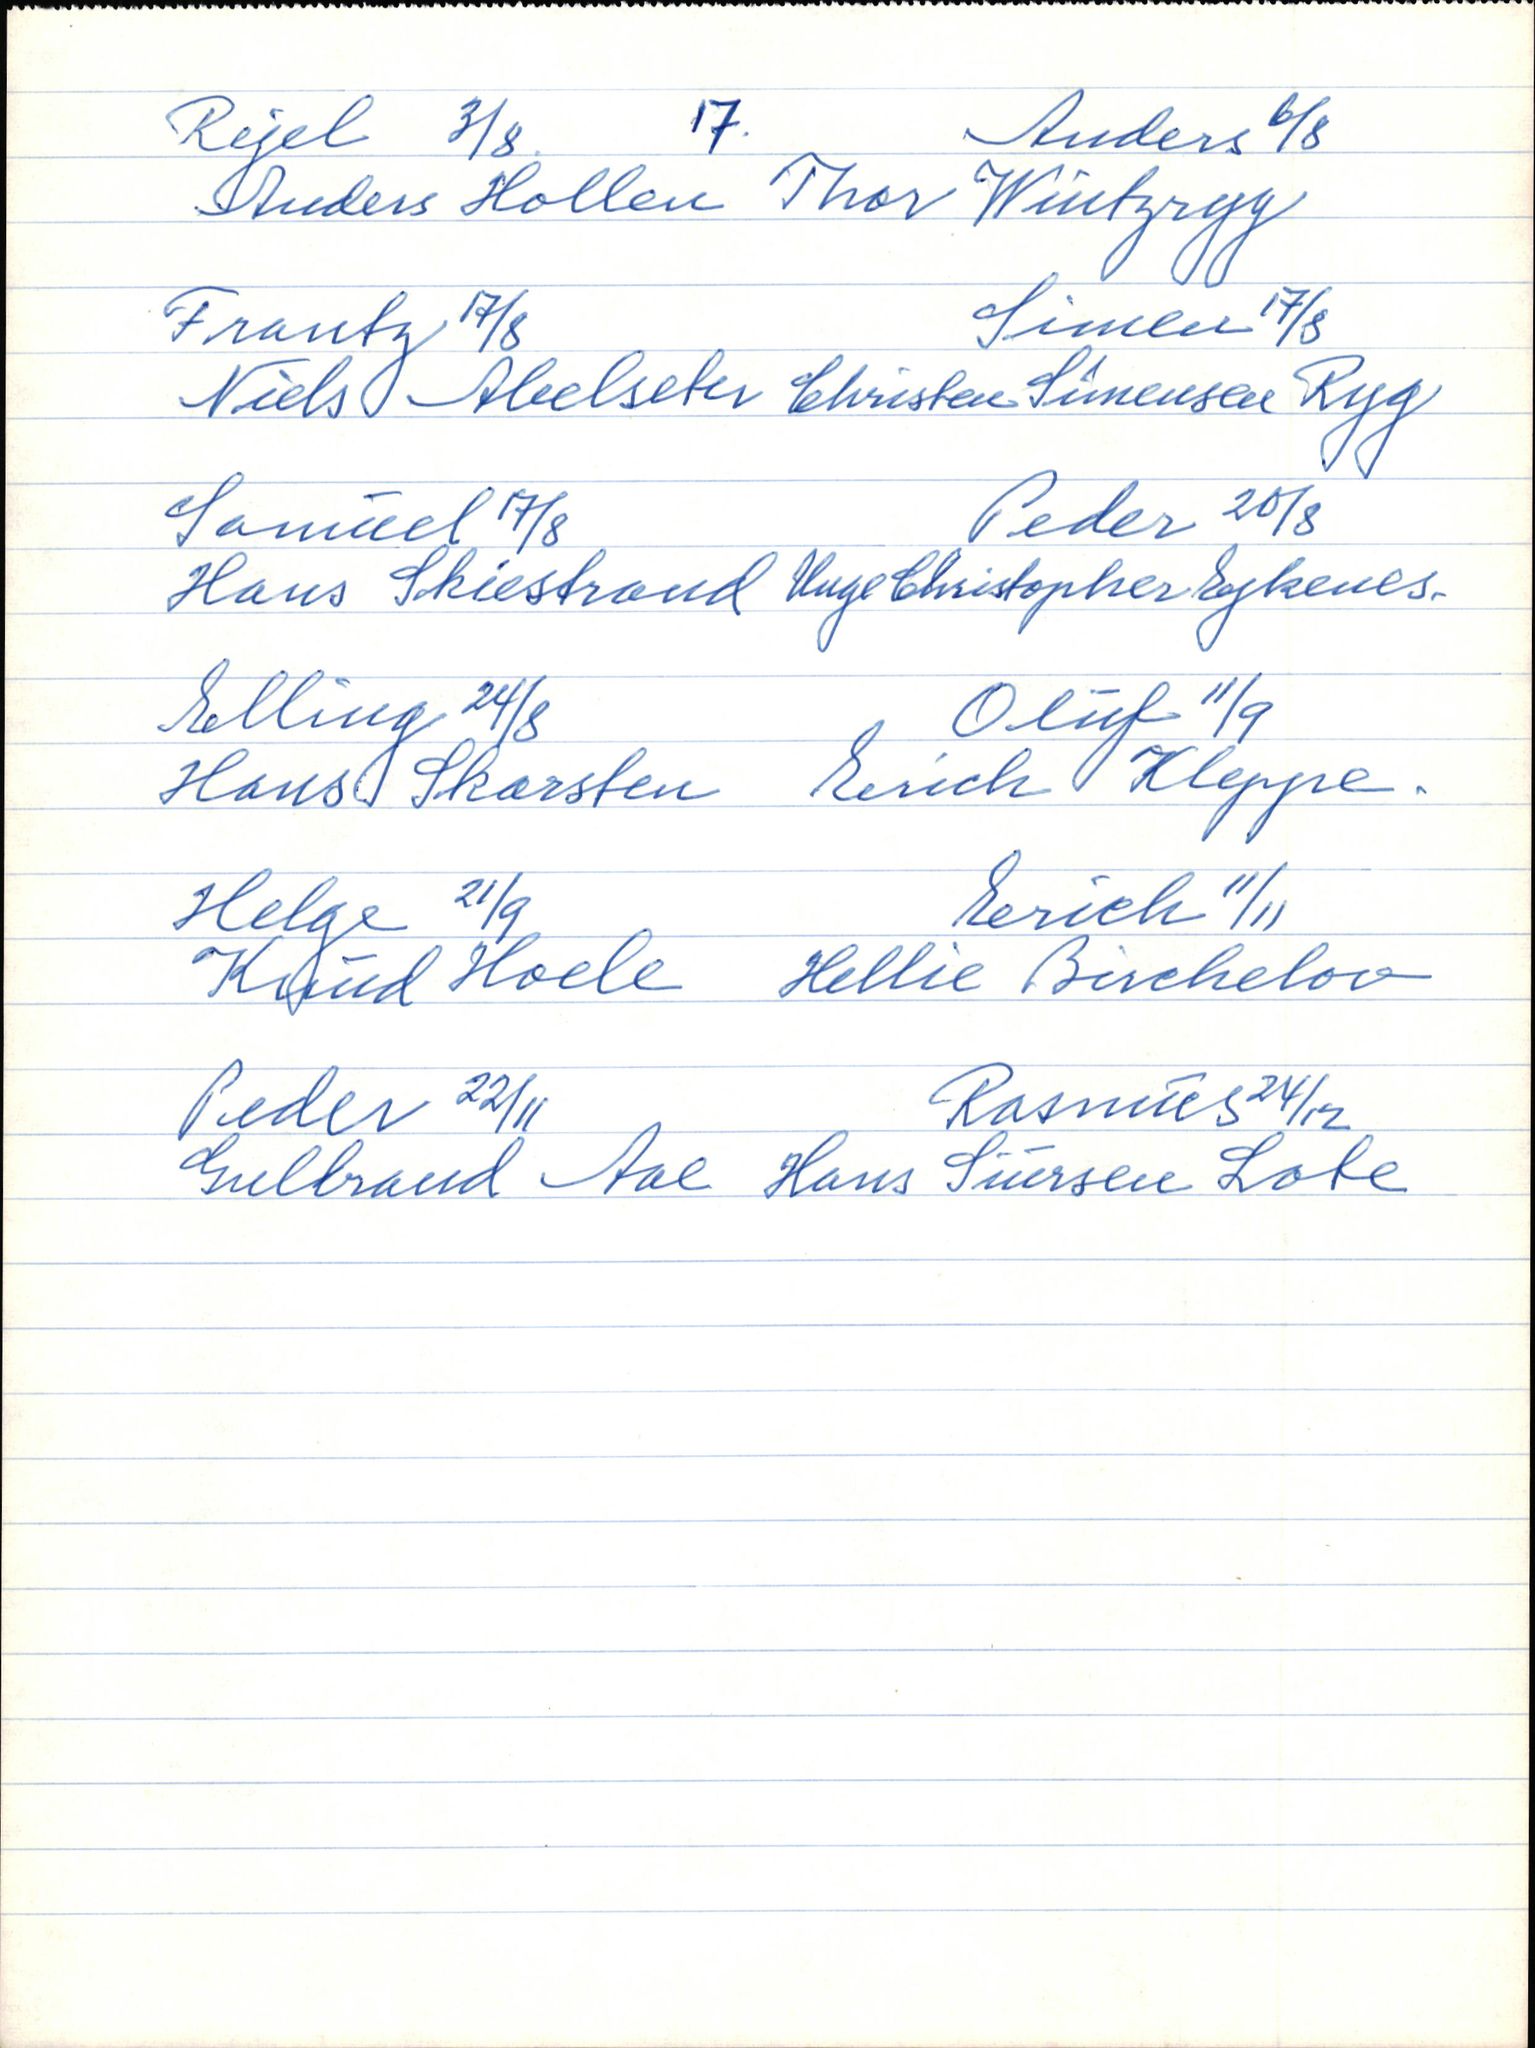 Rejel 3/8. 17. Anders 6/8
Anders Hollen Thor Wintzryg
Frantz 17/8 Simen 17/8
Niels Abelseter Christen Simensen Ryg
Samuel 17/8 Peder 20/8
Hans Skiestrand Unge Christopher Eykenes.
Elling 24/8 Oluf 11/9
Hans Skarsten Erich Kleppe.
Helge 21/9 Erich 11/11
Knud Hoele Hellie Birchelov
Peder 22/11 Rasmus 24/12
Gulbrand Aae Hans Siursen Lote